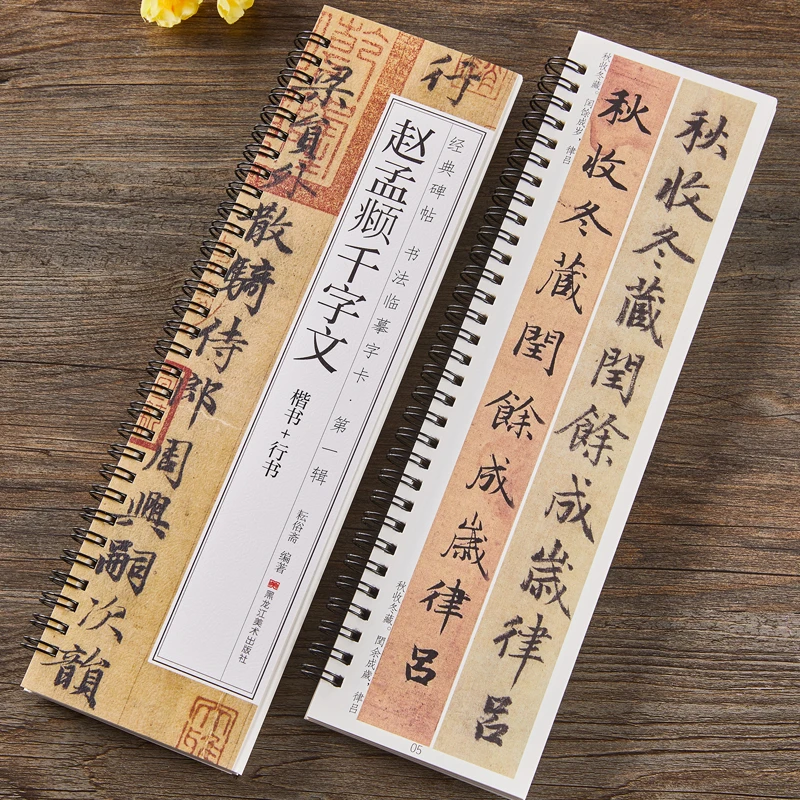 行
经典碑帖 书法临摹字卡·第一辑
赵孟𫖯千字文
楷书+行书
耘俗斋 编著
黑龙江美术出版社
梁員外散騎侍郎周興嗣次韻
秋收冬藏閏餘成歲律吕
秋收冬藏閏餘成歲律吕
秋收冬藏。闰馀成岁,律吕
秋收冬藏。閏余成歲,律吕
05